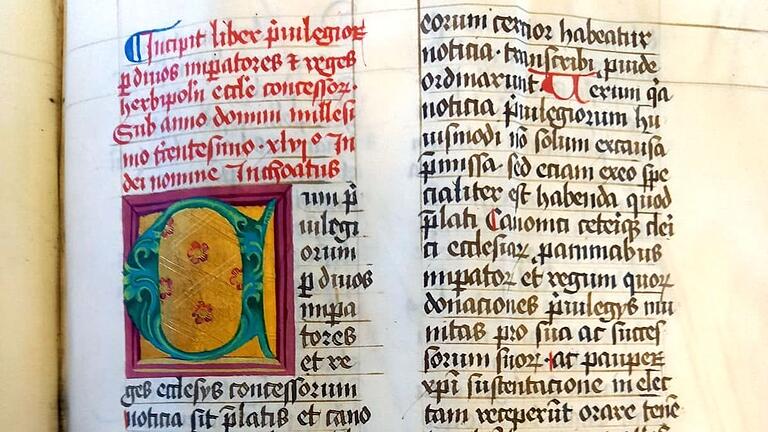 Incipit liber p̄uilegioꝝ
ꝑ diuos imꝑatores ⁊ reges
herbipoleñ eccl̄e concessoꝝ.
Sub anno domini millesi
mo trentesimo .xlviº In
dei nomine Inchoatus
Cum p̄
uilegi
orum
ꝑ diuos
imꝑa
tores
et re
ges ecclesijs concessorum
noticia sit p̄latis et cano
eorum certior habeatur
noticia. transcribi ꝓuide
ordinarunt. Verum qa
noticia p̄uilegiorum hu
iusmodi nō solum ex causa
p̄missa. sed etiam ex eo spe
cialiter est habenda quod
p̄lati Canonici ceteriqꝫ cleri
ci ecclesiaꝝ, ꝓ animabus
imꝑator et regum quoꝝ
donaciones p̄uilegijs mu
nitas pro sua ac succes
sorum suoꝝ. ac pauperꝝ
xp̄i sustentacione in elec
tam receperūt orare tenē